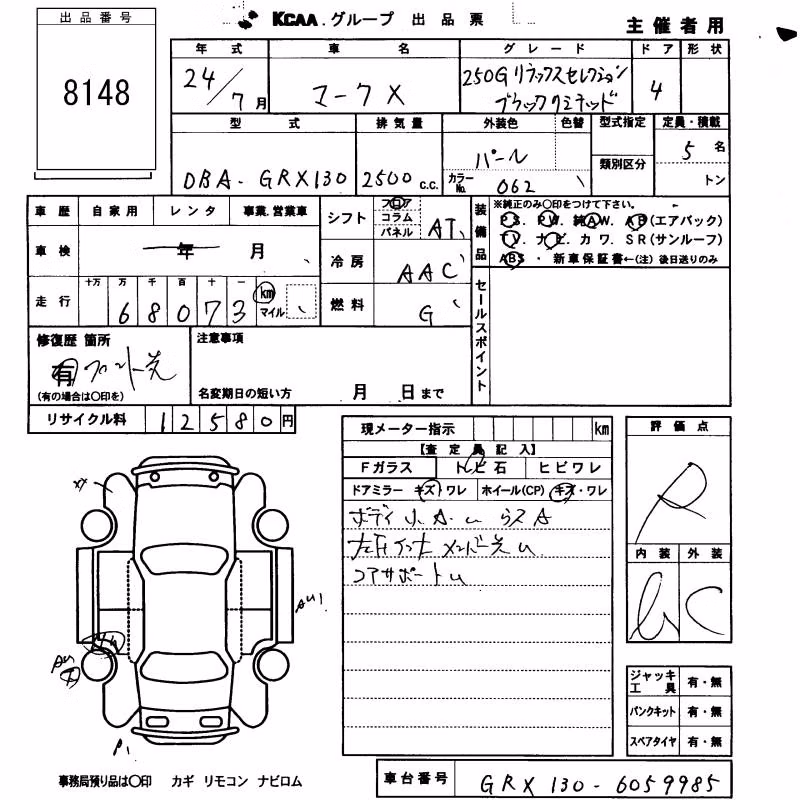 出品番号
8148
KCAA.グループ 出品票
主催者用
年式 車名 グレード ドア 形状
24/7月 マークX 250G リラックスセレクション 4
ブラックリミテッド
型式 排気量 外装色 色替 型式指定 定員・積載
DBA-GRX130 2500c.c. パール 5名
カラーNo. 062 類別区分 トン
車歴 自家用 レンタ 事業.営業車
シフト フロア コラム パネル AT
車検 年 月
冷房 AAC
走行 十万 万 千 百 十 一
68073 km マイル
燃料 G
装備品 ※純正のみ○印をつけて下さい。
PS. PW. 純AW. AB(エアバック)
TV. ナビ. カワ. SR(サンルーフ)
ABS・新車保証書←(注)後日送りのみ
セールスポイント
修復歴 箇所
有 フロント先
(有の場合は○印を)
注意事項
名変期日の短い方 月 日まで
リサイクル料 12580円
現メーター指示 km
【査定員記入】
Fガラス トビ石 ヒビワレ
ドアミラー キズ・ワレ ホイール(CP) キズ・ワレ
ボディ 小A.U ラスA
左右インナー メンバー先U
コアサポートU
評価点
R
内装 外装
C
AU1
P1
ジャッキ工具 有・無
パンクキット 有・無
スペアタイヤ 有・無
事務局預り品は○印 カギ リモコン ナビロム
車台番号 GRX130-6059985